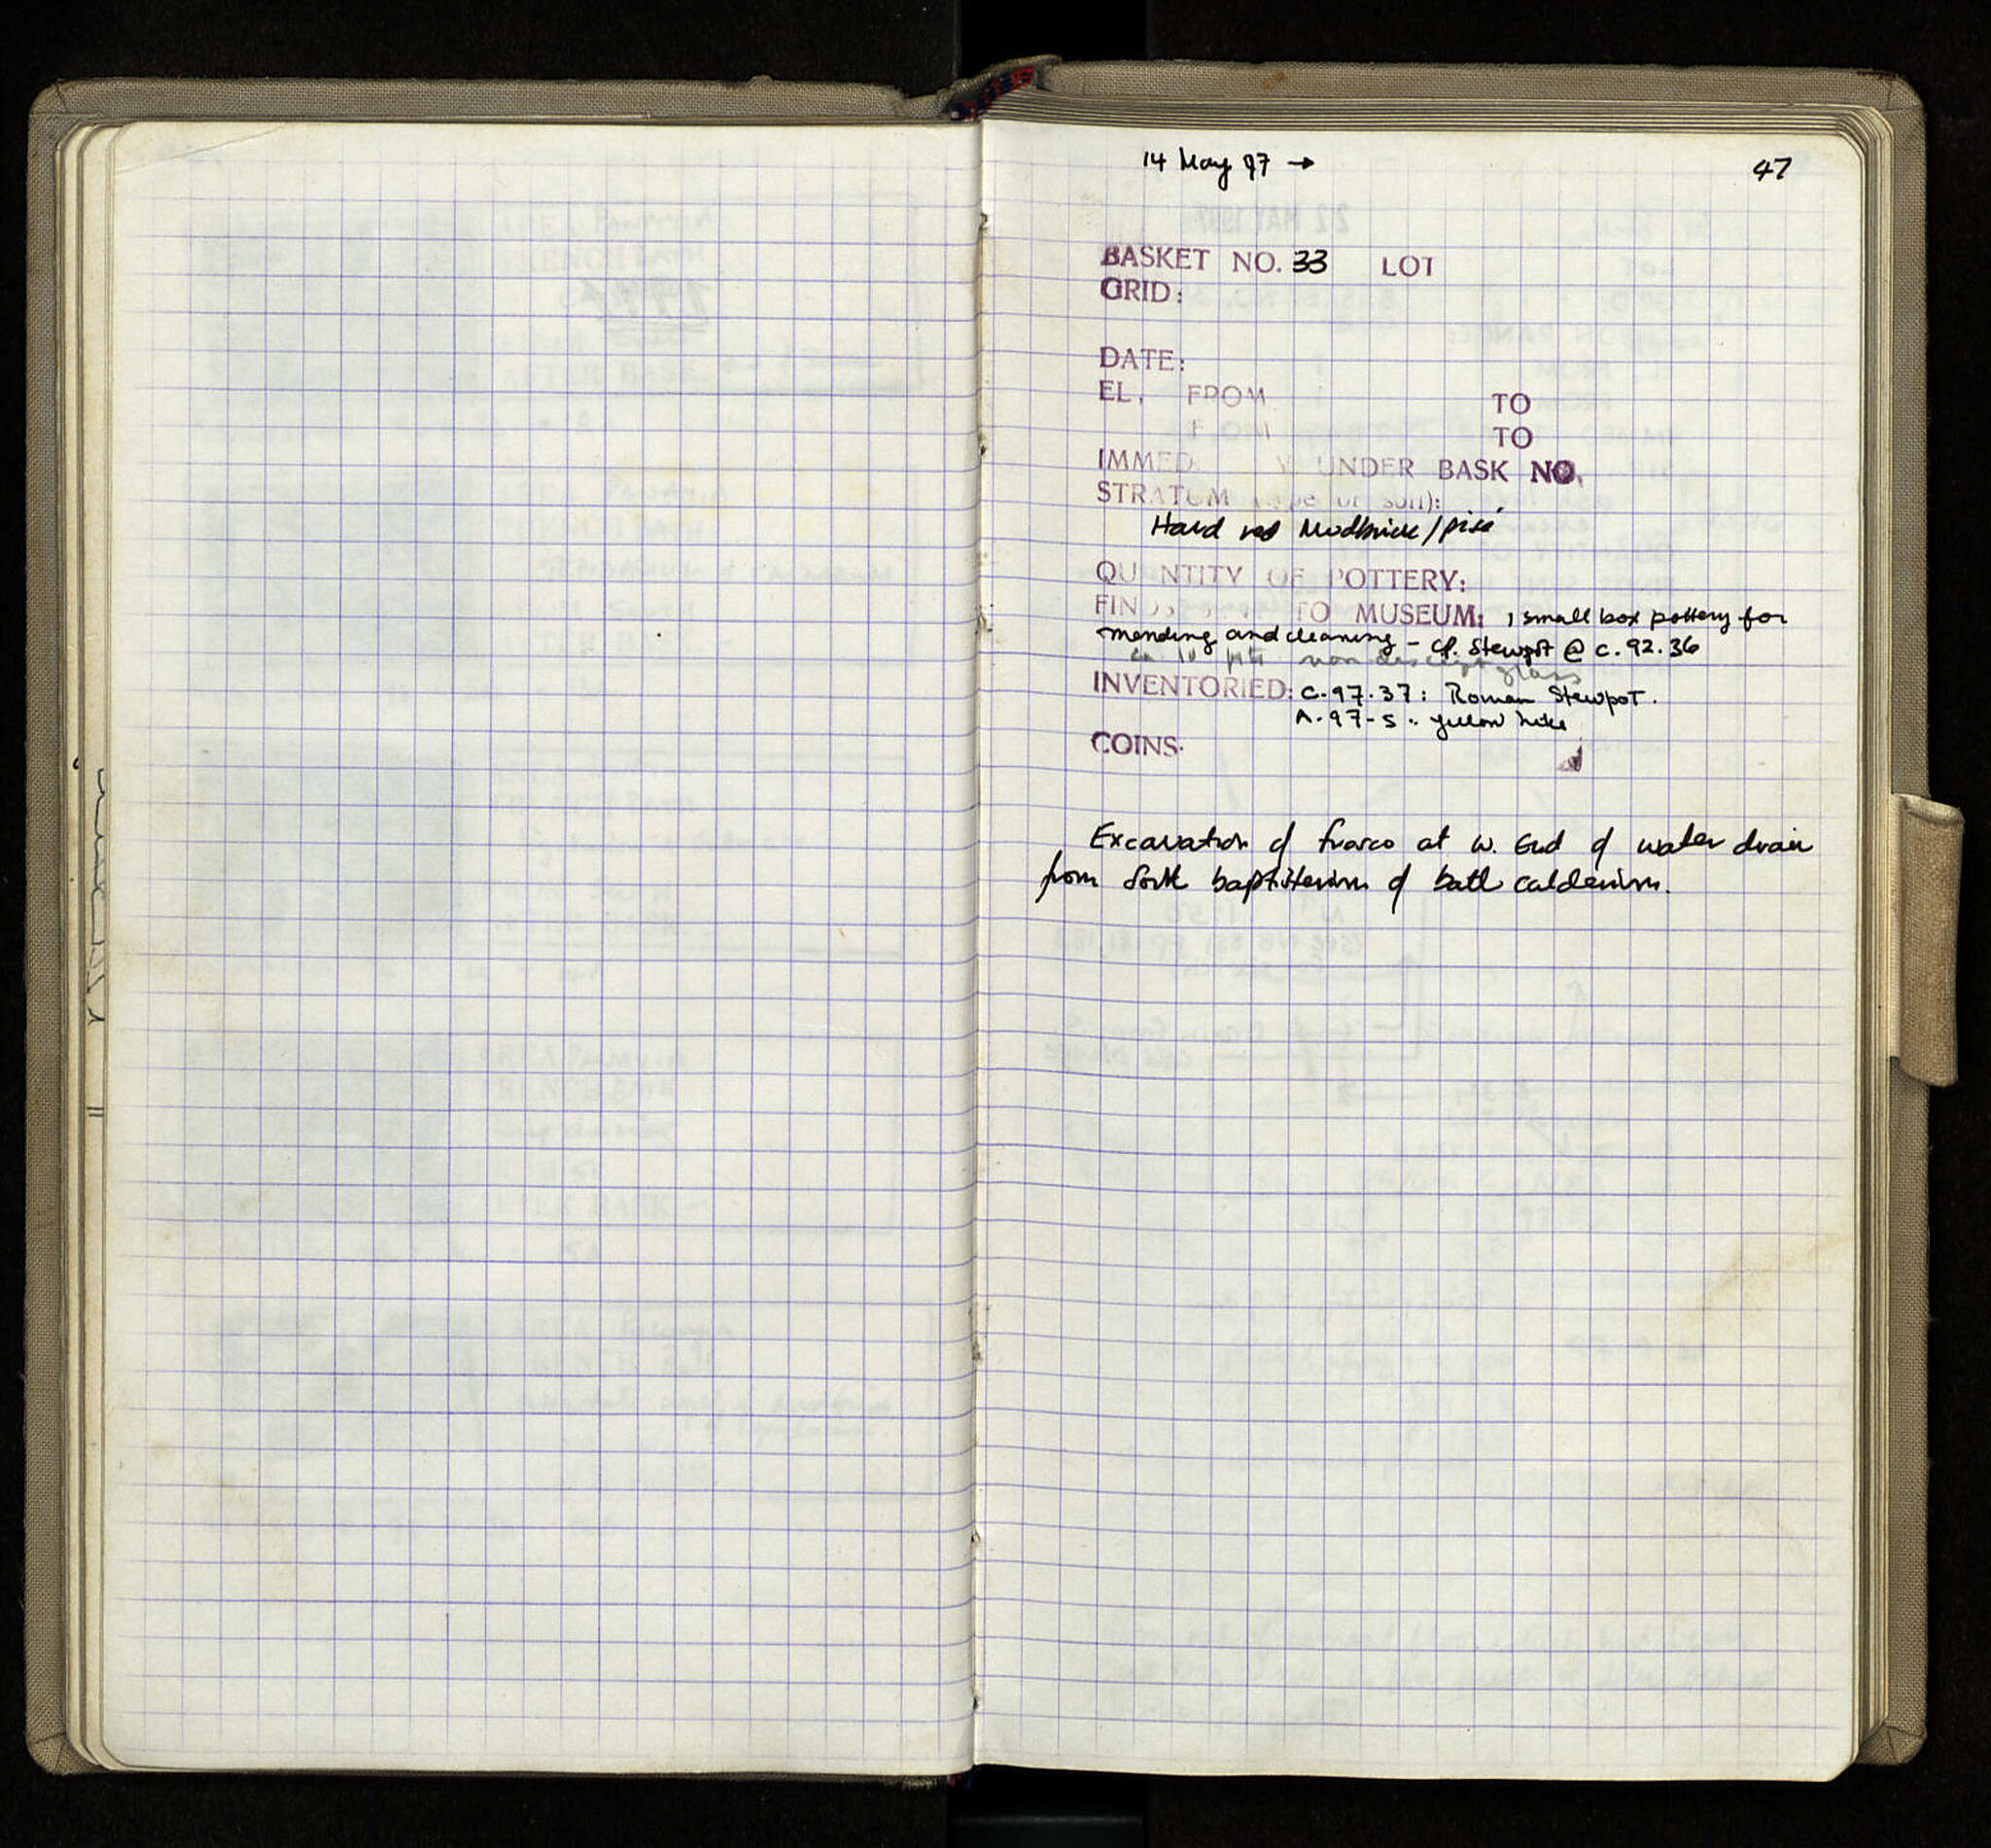 14 May 97 → 47
BASKET NO. 33 LOT
GRID:
DATE:
EL. FROM TO
FROM TO
IMMED Y UNDER BASK NO.
STRATUM (type of soil):
Hard red Mudbrick/pisé
QUANTITY OF POTTERY:
FINDS TO MUSEUM: 1 small box pottery for
mending and cleaning - cf. Stewpot @ c. 92.36
non descript glass
INVENTORIED: C-97-37: Roman Stewpot.
A-97-5:
COINS:
Excavation of at W. End of water drain
from of bath